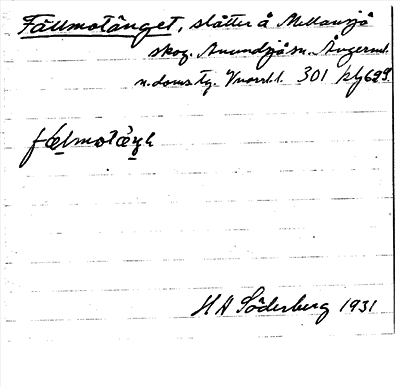 Fällmotänget, slåtter å Mellansjö
skog. Anundsjö sn. Ångerml.
n. doms tg. Vnorrl.l. 301 klj 629.
fælmotæ̀ŋe
H A Söderberg 1931